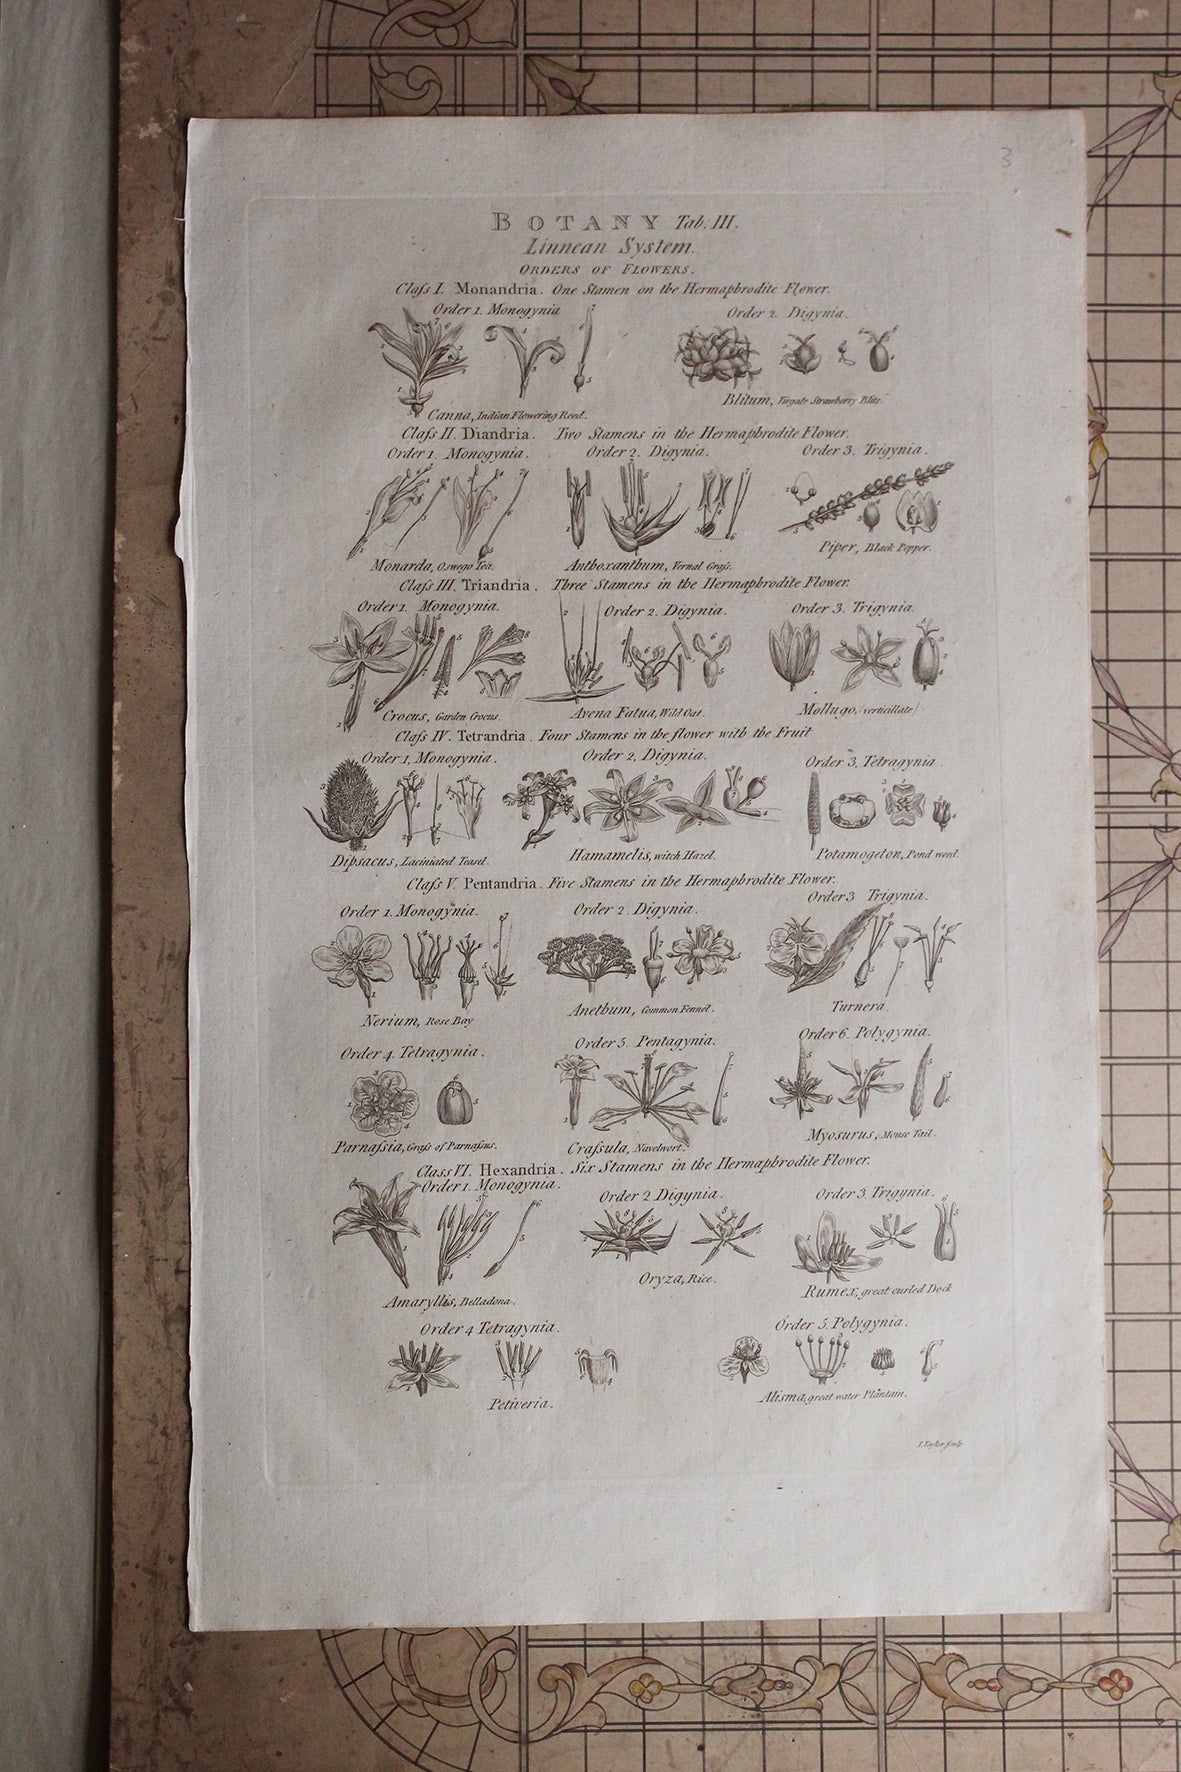 3
BOTANY Tab. III.
Linnean System.
ORDERS OF FLOWERS.
Claſs I. Monandria. One Stamen on the Hermaphrodite Flower.
Order 1. Monogynia
Order 2. Digynia.
Canna, Indian Flowering Reed.
Blitum, Virgate Strawberry Blite
Claſs II. Diandria. Two Stamens in the Hermaphrodite Flower.
Order 1. Monogynia.
Order 2. Digynia.
Order 3. Trigynia.
Monarda, Oswego Tea.
Anthoxanthum, Vernal Graſs.
Piper, Black Pepper.
Claſs III. Triandria. Three Stamens in the Hermaphrodite Flower.
Order 1. Monogynia.
Order 2. Digynia.
Order 3. Trigynia.
Crocus, Garden Crocus.
Avena Fatua, Wild Oat.
Mollugo, verticillate
Claſs IV. Tetrandria. Four Stamens in the flower with the Fruit
Order 1, Monogynia.
Order 2, Digynia.
Order 3, Tetragynia.
Dipsacus, Laciniated Teasel.
Hamamelis, witch Hazel.
Potamogeton, Pond weed.
Claſs V. Pentandria. Five Stamens in the Hermaphrodite Flower.
Order 1. Monogynia.
Order 2. Digynia.
Order 3 Trigynia.
Nerium, Rose Bay
Anethum, Common Fennel.
Turnera.
Order 4. Tetragynia.
Order 5. Pentagynia.
Order 6. Polygynia.
Parnaſsia, Graſs of Parnaſsus.
Craſsula, Navelwort.
Myosurus, Mouse Tail.
Claſs VI. Hexandria. Six Stamens in the Hermaphrodite Flower.
Order 1. Monogynia.
Order 2 Digynia.
Order 3. Trigynia.
Amaryllis, Belladona.
Oryza, Rice.
Rumex, great curled Dock
Order 4 Tetragynia.
Order 5. Polygynia.
Petiveria.
Alisma, great water Plantain.
I. Taylor sculp.